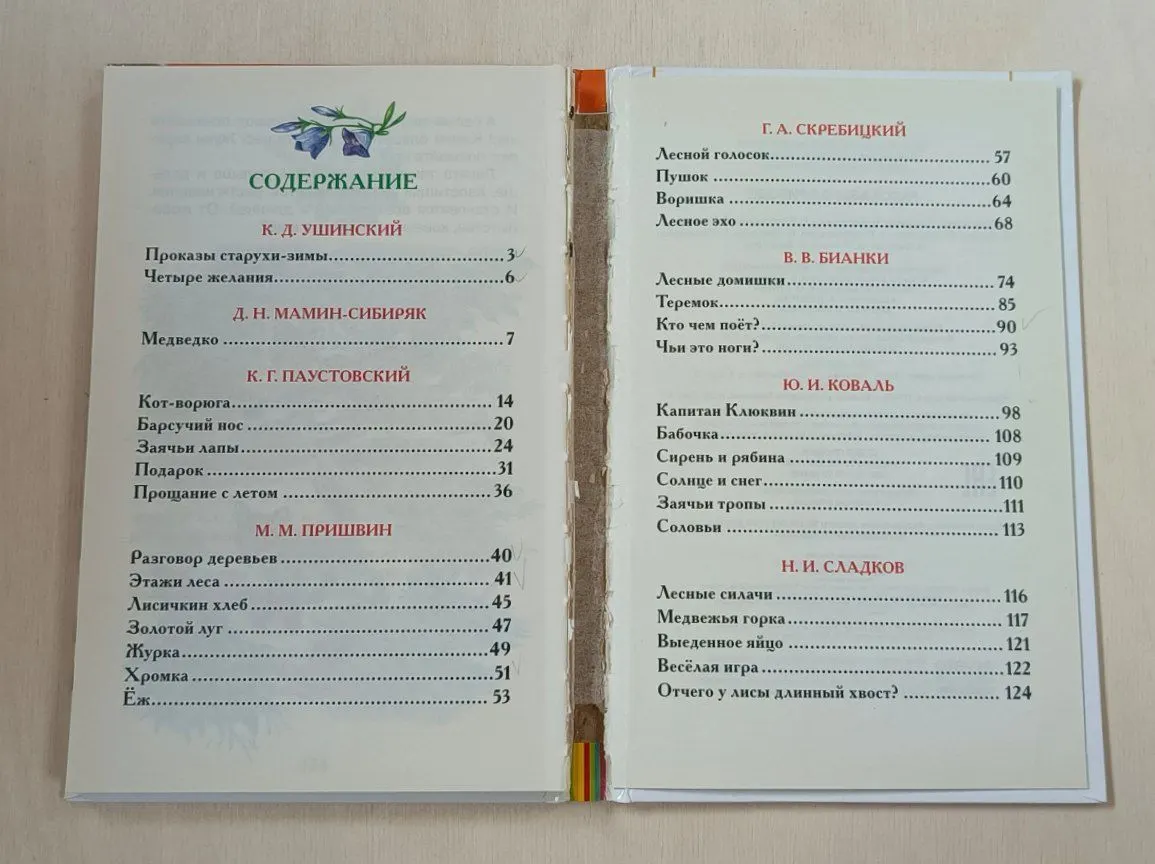 СОДЕРЖАНИЕ
К. Д. УШИНСКИЙ
Проказы старухи-зимы........................3
Четыре желания................................6
Д. Н. МАМИН-СИБИРЯК
Медведко ........................................7
К. Г. ПАУСТОВСКИЙ
Кот-ворюга.....................................14
Барсучий нос ..................................20
Заячьи лапы....................................24
Подарок ........................................31
Прощание с летом .............................36
М. М. ПРИШВИН
Разговор деревьев .............................40
Этажи леса .....................................41
Лисичкин хлеб .................................45
Золотой луг ....................................47
Журка...........................................49
Хромка .........................................51
Ёж...............................................53
Г. А. СКРЕБИЦКИЙ
Лесной голосок.................................57
Пушок ..........................................60
Воришка ........................................64
Лесное эхо .....................................68
В. В. БИАНКИ
Лесные домишки................................74
Теремок.........................................85
Кто чем поёт?..................................90
Чьи это ноги?..................................93
Ю. И. КОВАЛЬ
Капитан Клюквин ..............................98
Бабочка........................................108
Сирень и рябина ..............................109
Солнце и снег.................................110
Заячьи тропы .................................111
Соловьи .......................................113
Н. И. СЛАДКОВ
Лесные силачи ................................116
Медвежья горка...............................117
Выеденное яйцо ..............................121
Весёлая игра ..................................122
Отчего у лисы длинный хвост? ..............124